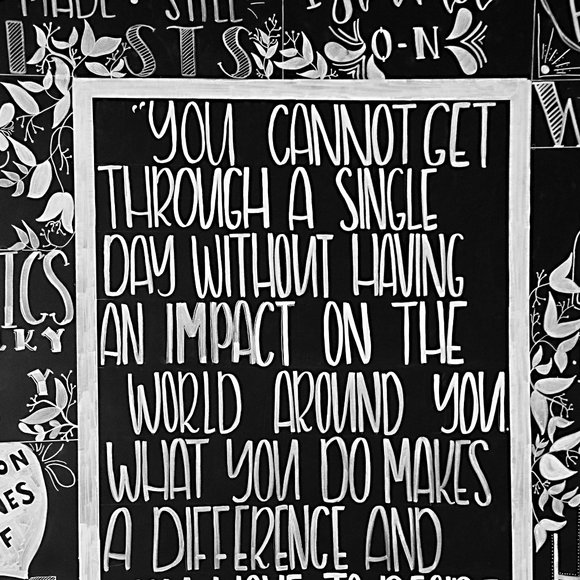 MADE · STILL
STS
O-N
"YOU CANNOT GET
THROUGH A SINGLE
DAY WITHOUT HAVING
AN IMPACT ON THE
WORLD AROUND YOU.
WHAT YOU DO MAKES
A DIFFERENCE AND
TICS
KY
Y
ON
NES
F